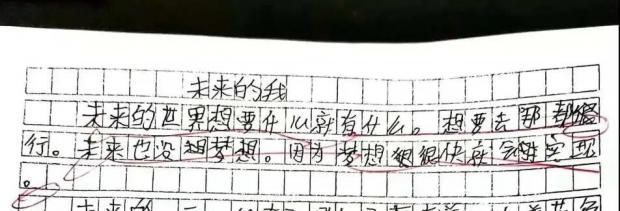 未来的我
未来的世界想要什么就有什么。想要去那都
行。未来也没想梦想。因为梦想很很快就会实现
。
未来的